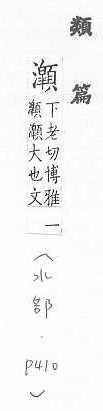 類篇
灝
下老切博雅一
灝灝大也文
（水部．P410）